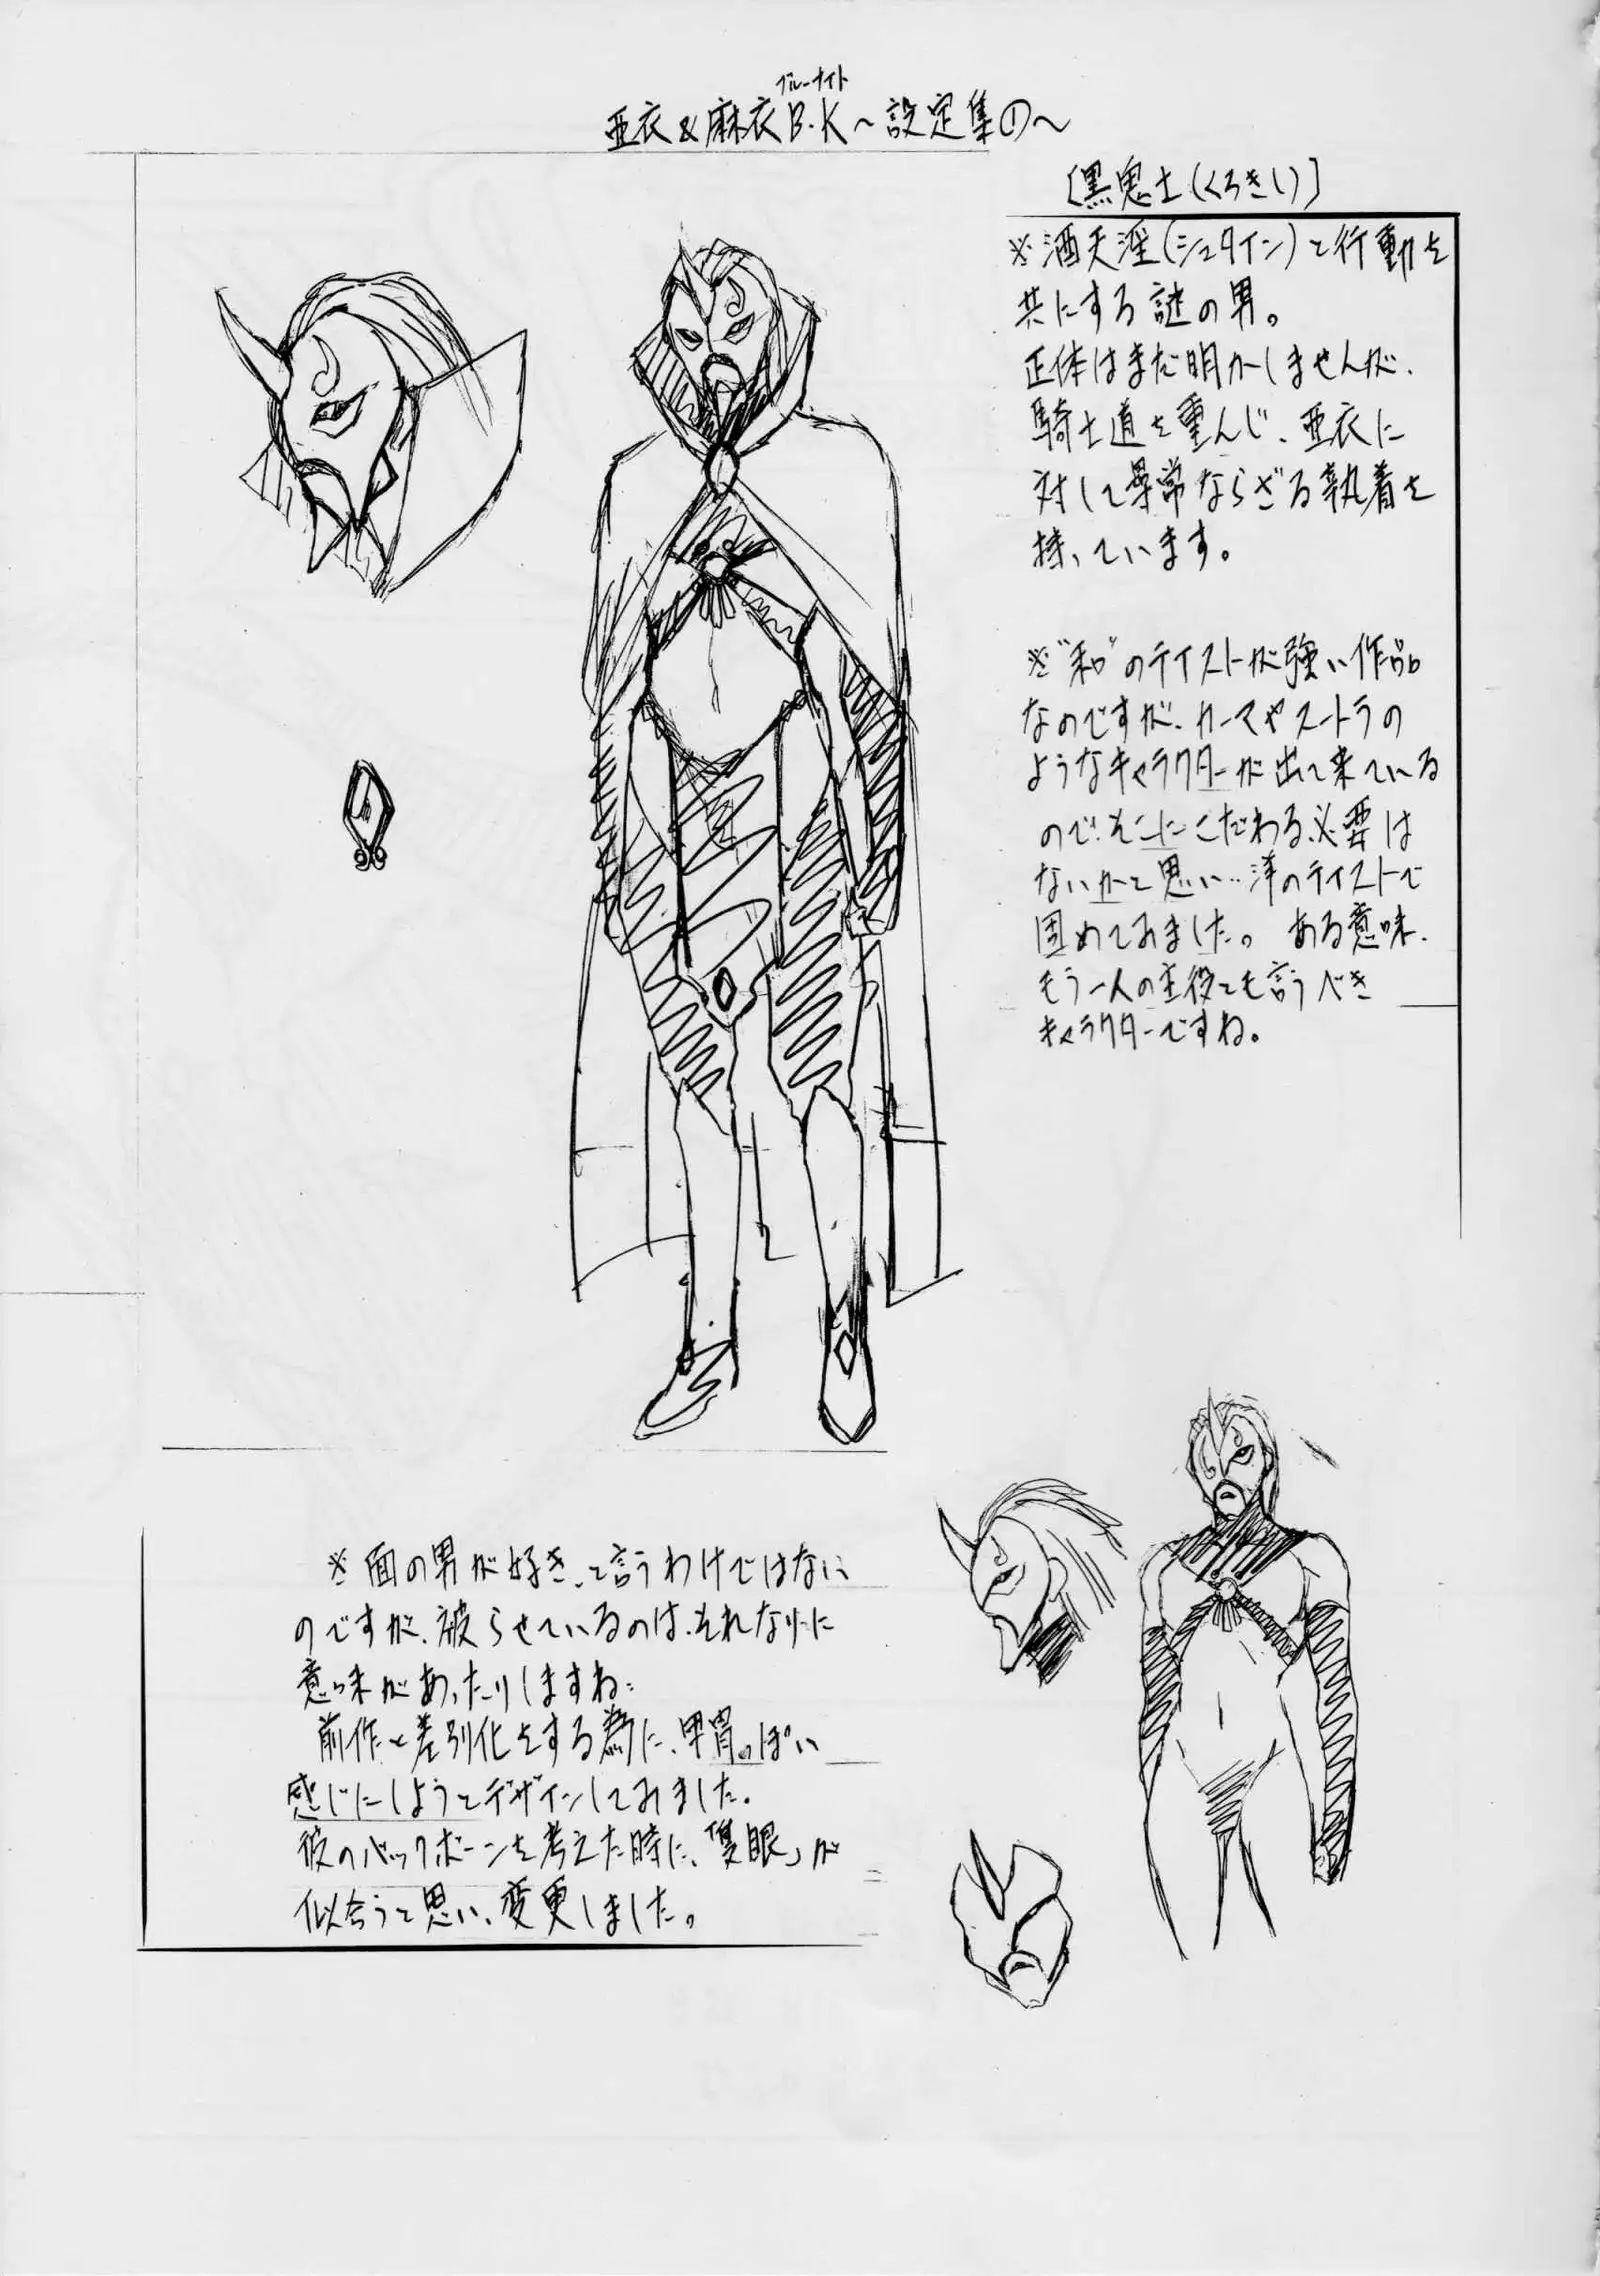 ブルーナイト
亜衣&麻衣B.K〜設定集①〜
[黒鬼士(くろきし)]
※酒天淫(シュタイン)と行動を
共にする謎の男。
正体はまだ明かしませんが、
騎士道を重んじ、亜衣に
対して異常ならざる執着を
持っています。
※"和"のテイストが強い作品
なのですが、カーマやスートラの
ようなキャラクターが出て来ている
ので、そこにこだわる必要は
ないかと思い‥洋のテイストで
固めてみました。ある意味、
もう一人の主役とも言うべき
キャラクターですね。
※面の男が好きって言うわけではない
のですが、被らせているのは、それなりに
意味があったりしますね‥
前作と差別化をする為に、甲冑っぽい
感じにしようとデザインしてみました。
彼のバックボーンを考えた時に、「隻眼」が
似合うと思い、変更しました。